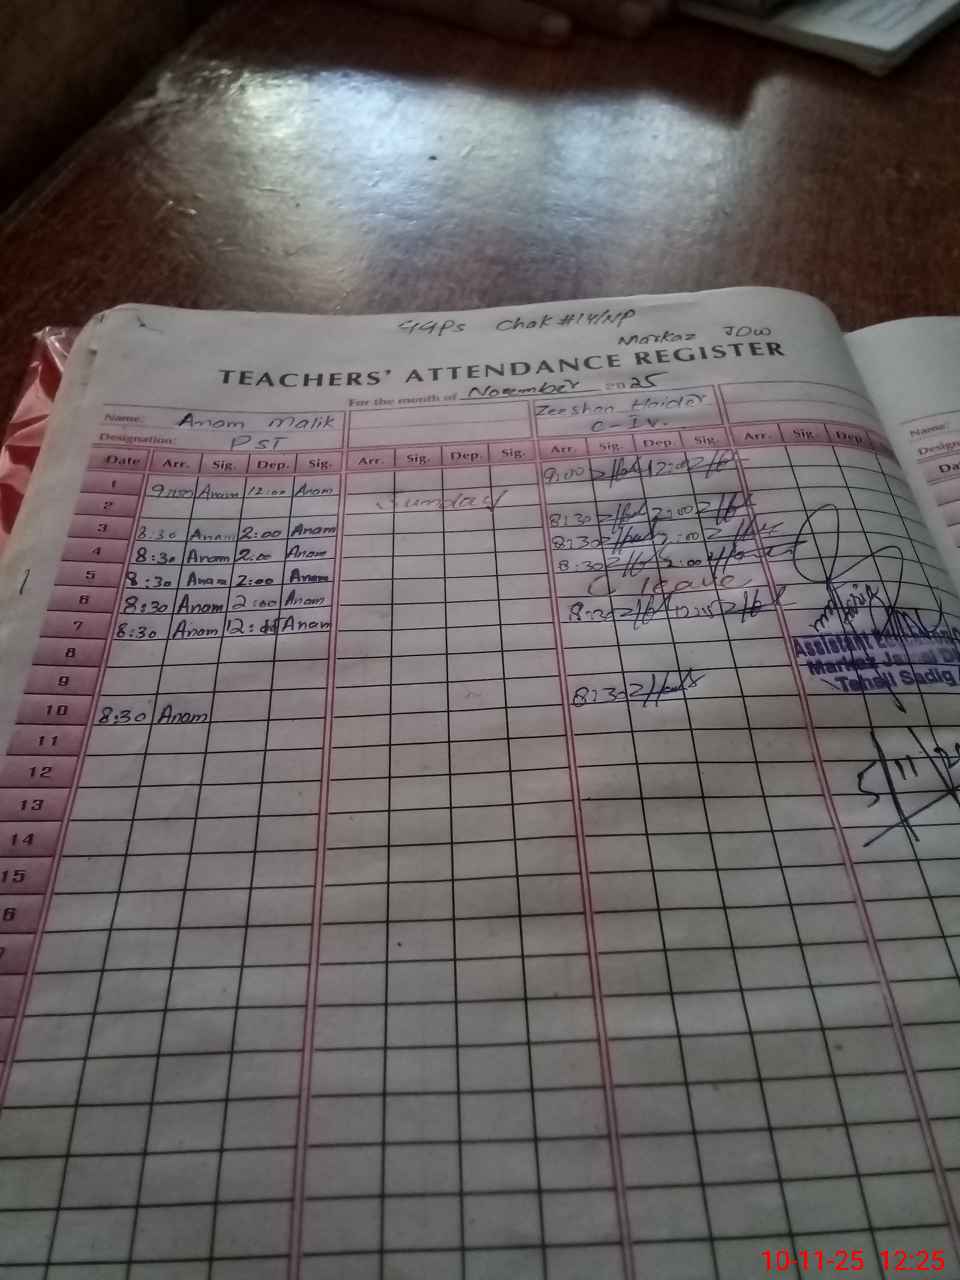 GGPS Chak #14/NP
Markaz JDW
TEACHERS' ATTENDANCE REGISTER
For the month of November 2025
Name: Anam Malik Zeeshan Haider
Designation: PST C-IV.
Date Arr. Sig. Dep. Sig. Arr. Sig. Dep. Sig. Arr. Sig. Dep. Sig. Arr. Sig. Dep.
1 9:00 Anam 12:00 Anam 9:00 12:00
2 Sunday
3 8:30 Anam 2:00 Anam 8:30 2:00
4 8:30 Anam 2:00 Anam 8:30 2:00
5 8:30 Anam 2:00 Anam 8:30 2:00
6 8:30 Anam 2:00 Anam C leave
7 8:30 Anam 12: Anam 8:30
8
9
10 8:30 Anam 8:30
11
12
13
14
15
6
7
Assistant
Markaz
Tehsil Sadiq
5/11/
Name:
10-11-25 12:25